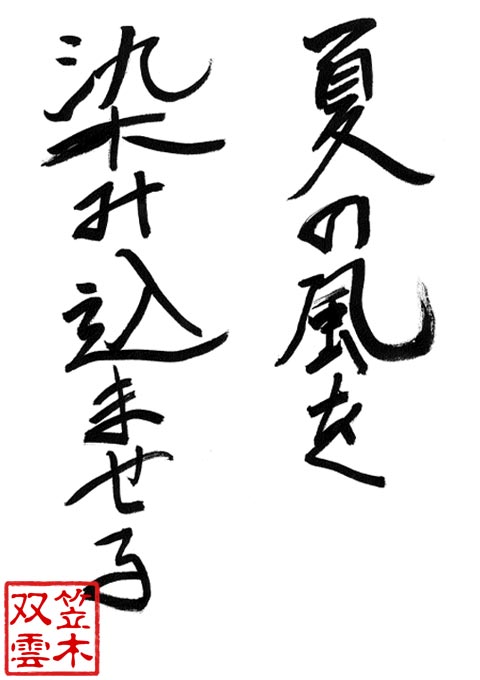 夏の風を
染み込ませる
笠木
双雲